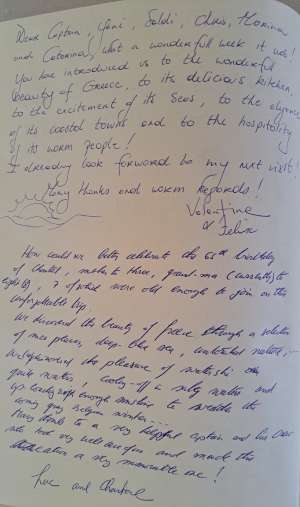 Dear Captain, Yani, Saldi, Chris, Marina
and Caterina, what a wonderfull week it was!
You have introduced us to the wonderful
beauty of Greece, to its delicious kitchen,
to the excitement of its Seas, to the elegance
of its coastal towns and to the hospitality
of its warm people!
I already look forward to my next visit!
Many thanks and warm regards!
Valentine
& Felix
How could we better celebrate the 65th birthday
of Chantal, mother to three, grand-ma (currently) to
eight, 7 of which were old enough to join on this
unforgettable trip.
We discovered the beauty of Greece through a selection
of nice places, deep-blue sea, untouched nature, ...
We experienced the pleasure of waterski on
quiet waters, cooling-off in silky waters and
hopefully enough sunshine to swallow the
coming grey Belgian winter...
Many thanks to a very helpful captain and his crew
who took very well care of us and made this
vacation a very memorable one!
Luc and Chantal